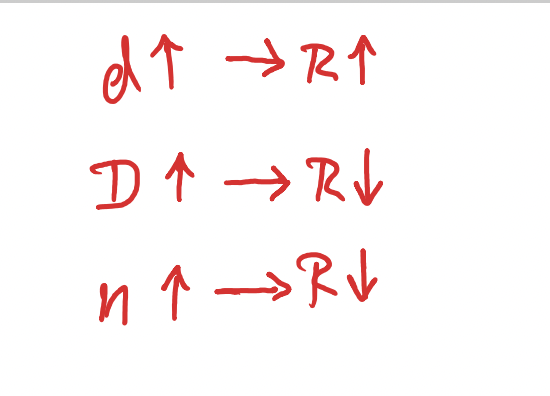 d ↑ → R ↑
D ↑ → R ↓
n ↑ → R ↓